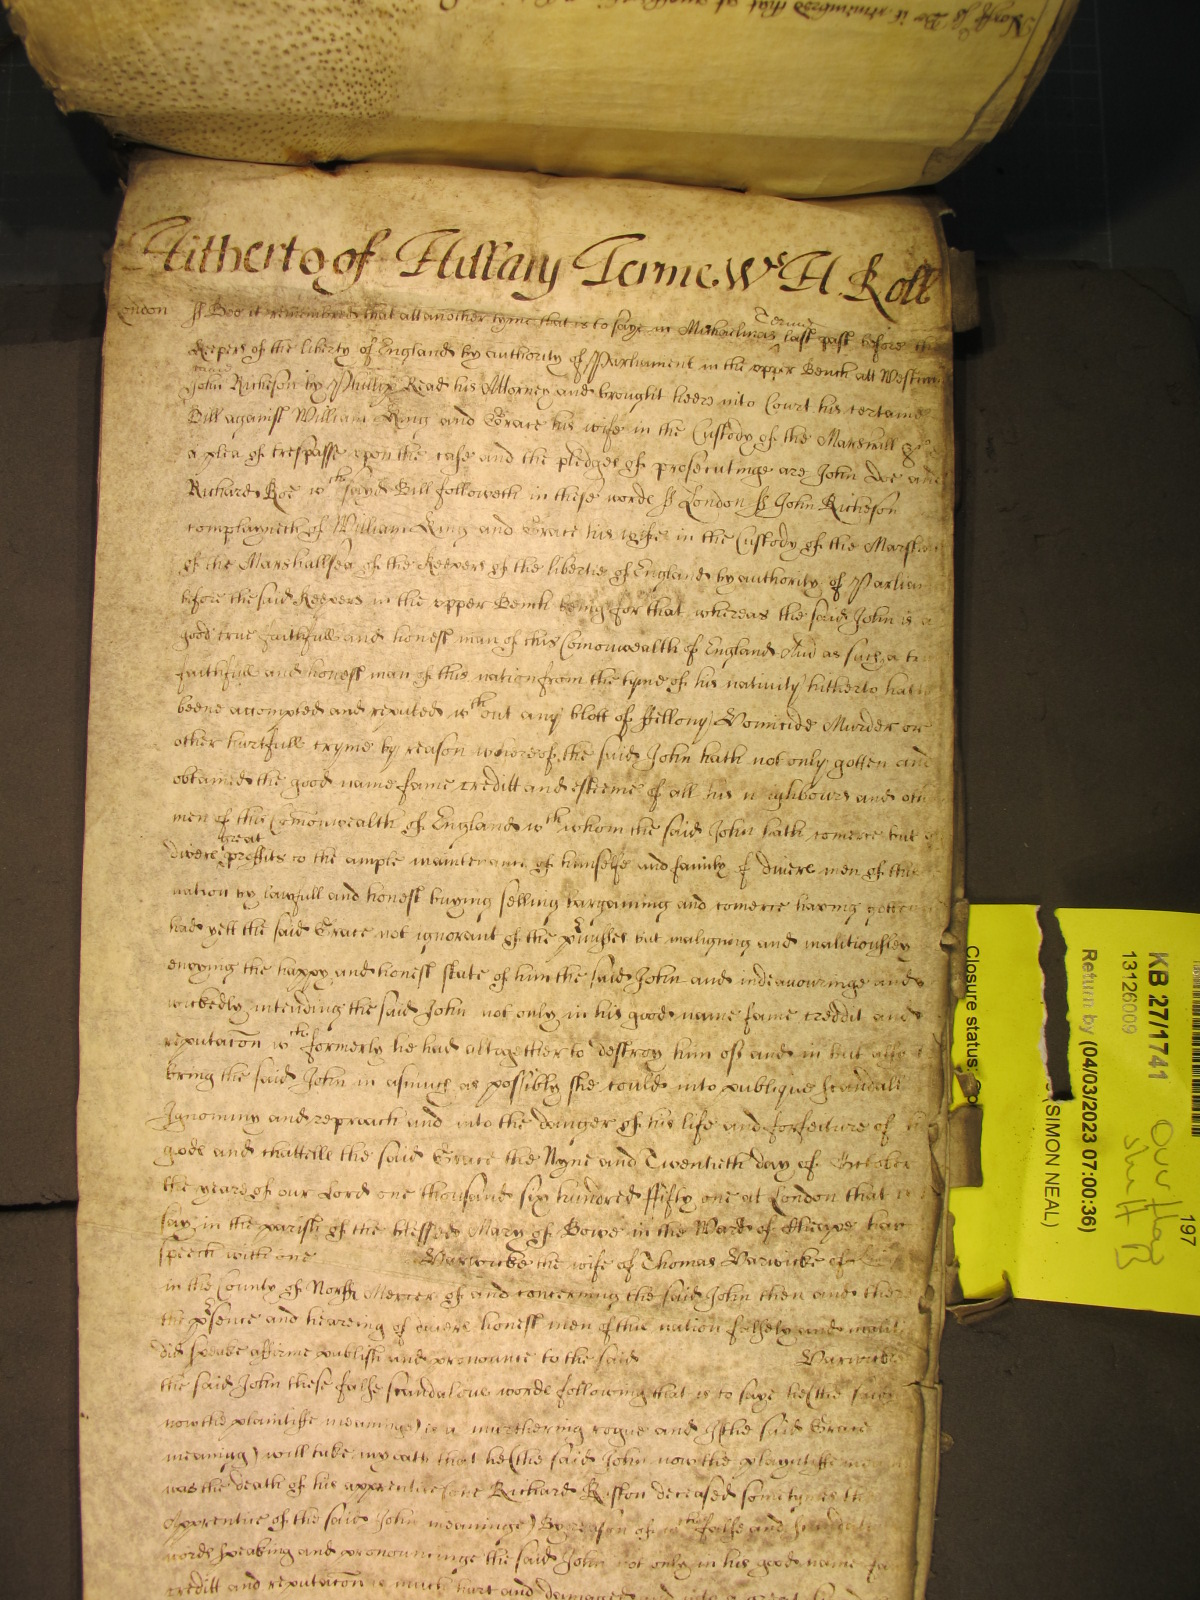 Hitherto of Hillary Terme Wes H Roll
London ss Bee it remembred that att another tyme that is to saye in Michaelmas Terme last past before the
Keepers of the liberty of England by authority of Parliament in the upper Bench att Westm
came
John Rickeson by Phillip Read his Attorney and brought heere into Court his certaine
Bill against William King and Grace his wife in the Custody of the Marshall &c of
a plea of trespasse upon the case and the pledges of prosecutinge are John Doe and
Richard Roe wch sayd Bill followeth in these words ss London ss John Rickeson
complayneth of William King and Grace his wife in the Custody of the Marshall
of the Marshallsea of the Keepers of the libertie of England by authority of Parliam
before the said Keepers in the upper Bench being for that whereas the said John is a
good true faithfull and honest man of this Comonwealth of England And as such a true
faithfull and honest man of this nation from the tyme of his nativity hitherto hath
beene accompted and reputed wthout any blott of ffellony Homicide Murder or
other hurtfull cryme by reason whereof the said John hath not only gotten and
obtained the good name fame creditt and esteeme of all his neighbours and other
men of this Comonwealth of England wth whom the said John hath comerce but
divers great proffits to the ample maintenance of himselfe and family of divers men of this
nation by lawfull and honest buying selling bargaining and comerce having gotten
had yett the said Grace not ignorant of the pmisses but maligning and malitiousley
envying the happy and honest state of him the said John and indeavouringe and
wickedly intending the said John not only in his good name fame creddit and
reputacon wch formerly he had altogether to destroy him of and in but also to
bring the said John in asmuch as possibly she could into publique scandall
Ignominy and reproach and into the danger of his life and forfeiture of his
goods and chattells the said Grace the Nyne and Twentieth day of October
the yeare of our Lord one thousand six hundred ffifty one at London that is to
say in the parish of the blessed Mary of Bowe in the Ward of Cheape had
speech with one Barwicke the wife of Thomas Barwicke of
in the County of Norff Mercer of and concerning the said John then and there
the psence and heareing of divers honest men of this nation falsely and malit
did speake affirme publish and pronounce to the said Barwicke
the said John these false scandalous words following that is to saye he (the said
now the plaintiffe meaninge) is a murthering rogue and I (the said Grace
meaning) will take my oath that he (the said John now the playntiffe
was the death of his apprentice (one Richard deceased sometymes the
apprentice of the said John meaninge) By reason of wch false and scandalous
words speaking and pronouncinge the said John not only in his good name
creditt and reputacon is much hurt and damaged and into a great
KB 27/1741
13126009
Return by (04/03/2023 07:00:36)
(SIMON NEAL)
Closure status:
197